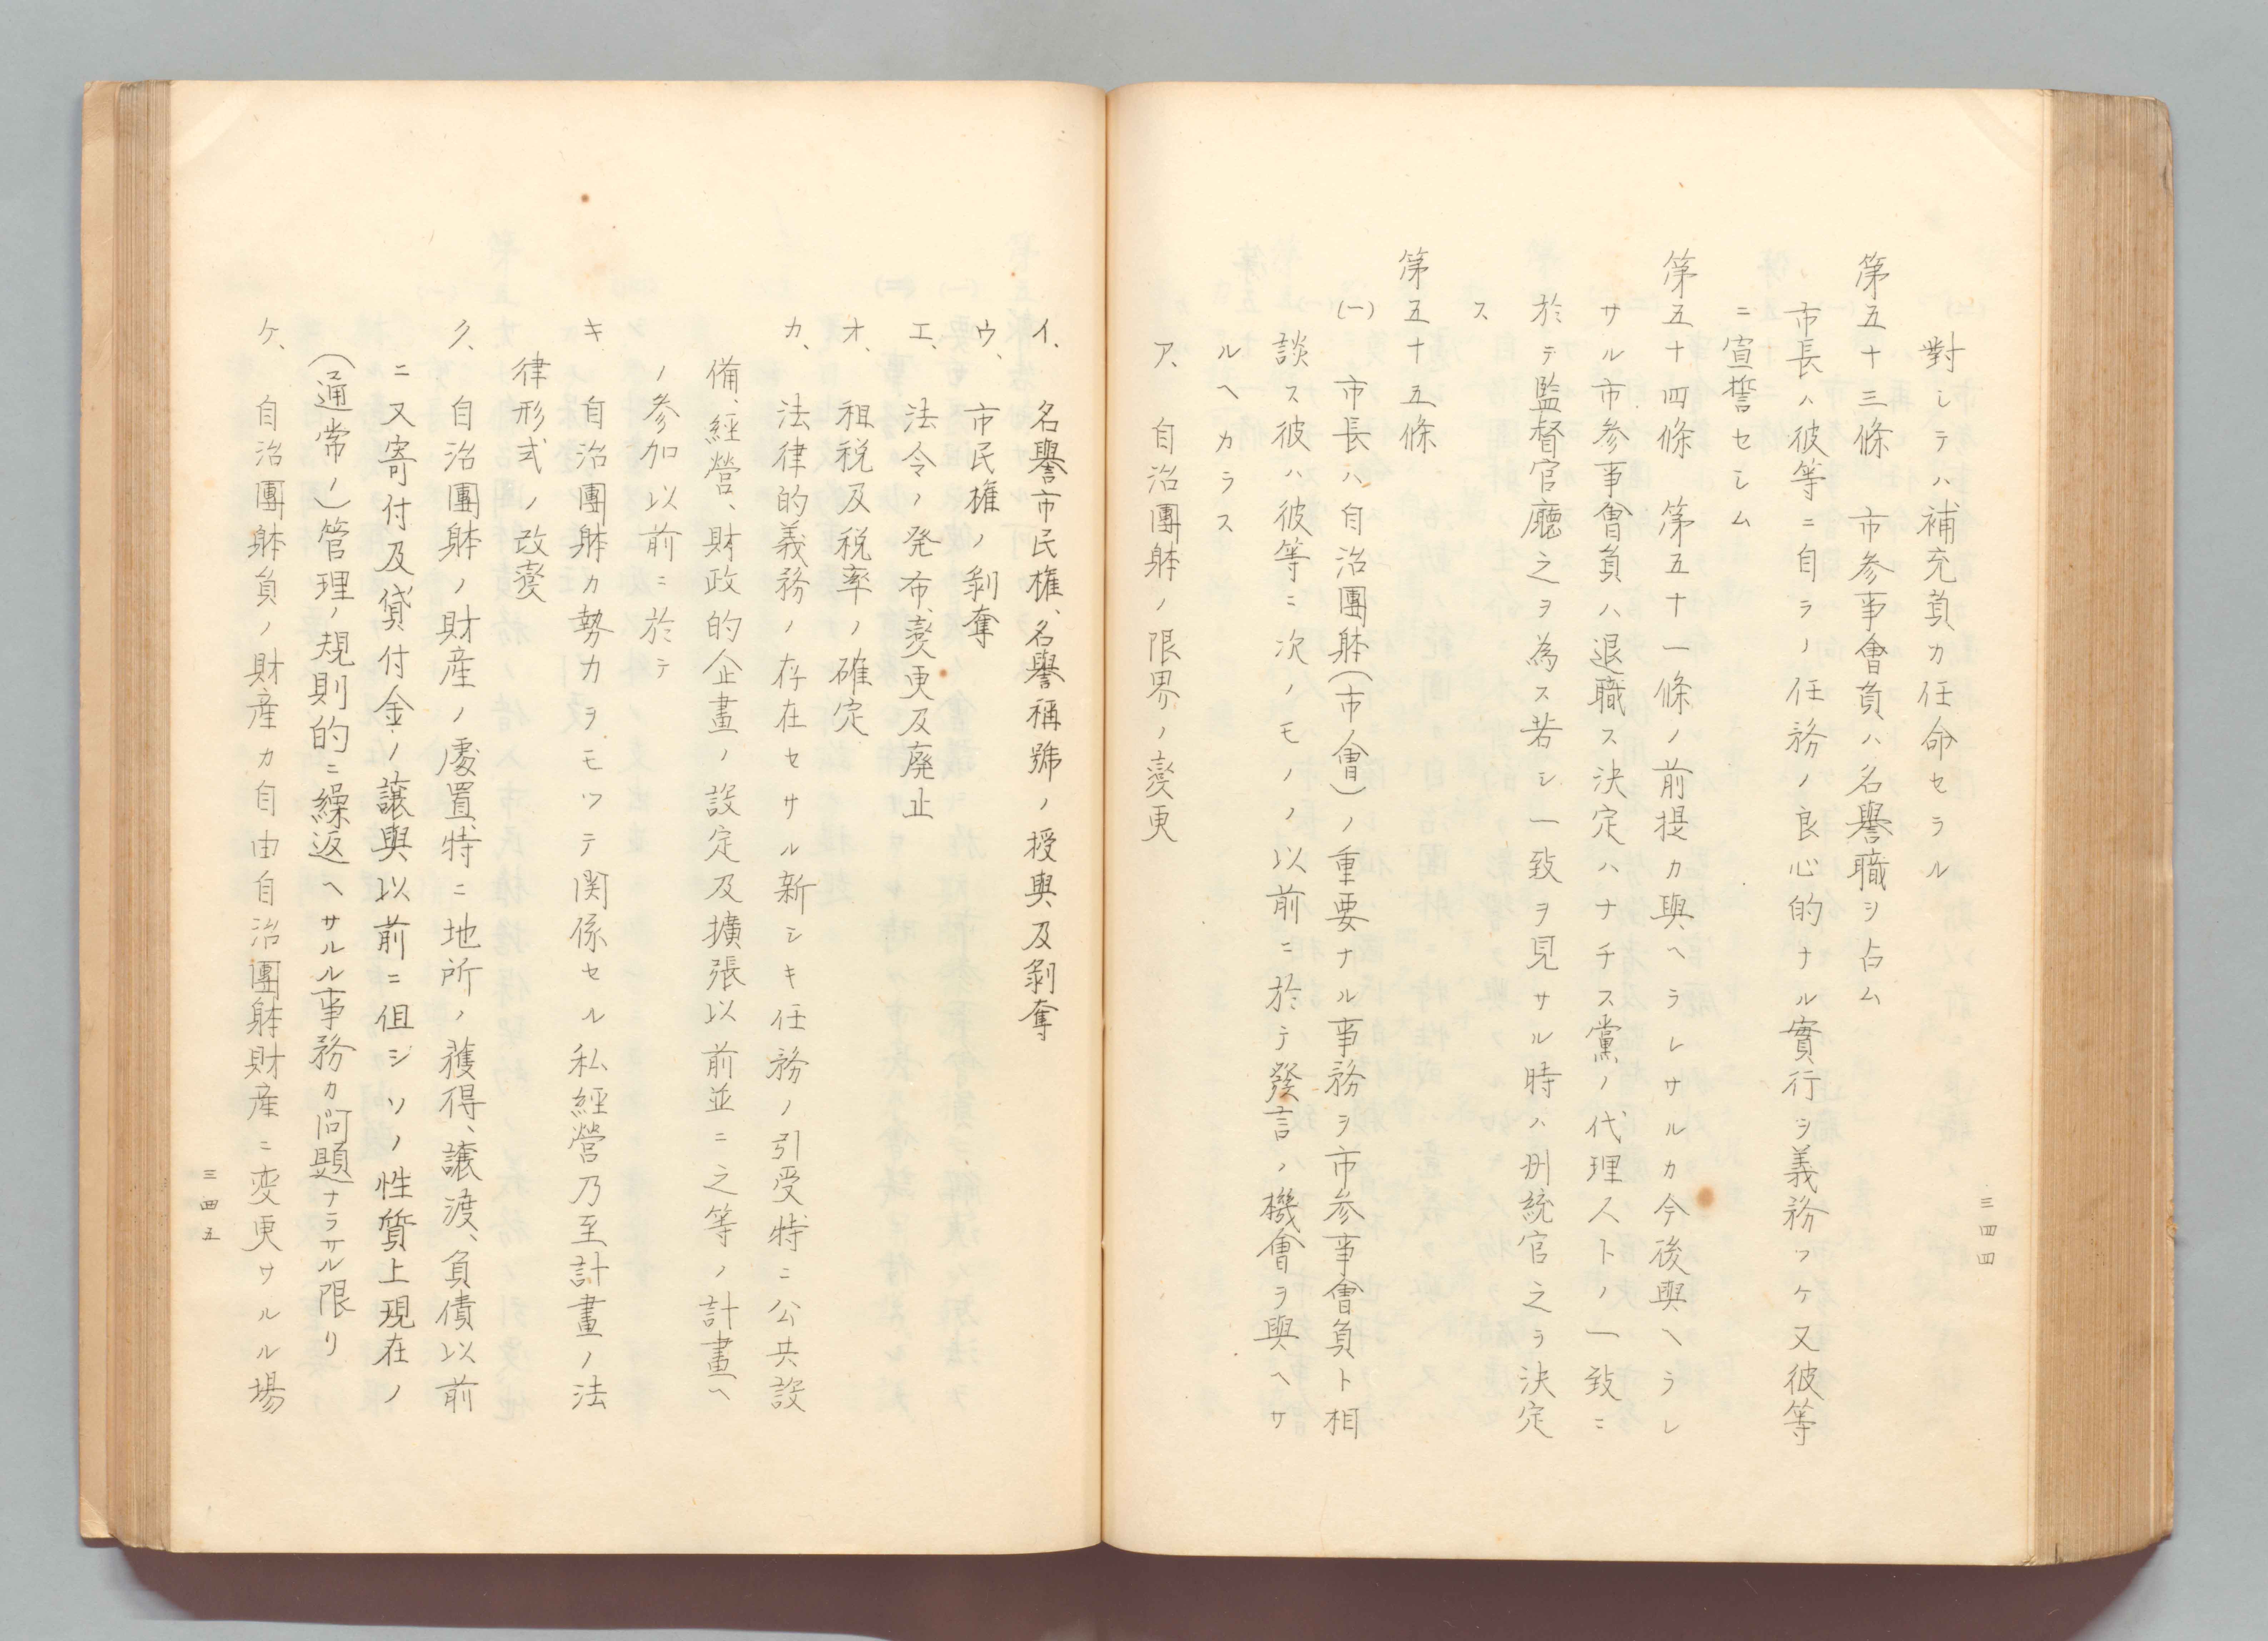 對シテハ補充員カ任命セラル
第五十三條　市参事會員ハ名譽職ヲ占ム
市長ハ彼等ニ自ラノ任務ノ良心的ナル實行ヲ義務ツケ又彼等
ニ宣誓セシム
第五十四條　第五十一條ノ前提カ與ヘラレサルカ今後與ヘラレ
サル市参事會員ハ退職ス決定ハナチス黨ノ代理人トノ一致ニ
於テ監督官廳之ヲ為ス若シ一致ヲ見サル時ハ州統官之ヲ決定
ス
第五十五條
(一)　市長ハ自治團躰(市ノ會)ノ重要ナル事務ヲ市参事會員ト相
談ス彼ハ彼等ニ次ノモノノ以前ニ於テ發言ノ機會ヲ與ヘサ
ルヘカラス
ア、自治團躰ノ限界ノ變更
三四四
イ、名譽市民權、名譽稱號ノ授與及剝奪
ウ、市民權ノ剝奪
エ、法令ノ発布、變更及廃止
オ、租税及税率ノ確定
カ、法律的義務ノ存在セサル新シキ任務ノ引受特ニ公共設
備、經營、財政的企畫ノ設定及擴張以前並ニ之等ノ計畫ヘ
ノ参加以前ニ於テ
キ　自治團躰カ勢力ヲモツテ関係セル私經營乃至計畫ノ法
律形式ノ改變
ク、自治團躰ノ財産ノ處置、特ニ地所ノ獲得、讓渡、負債以前
ニ又寄付及貸付金ノ讓與以前ニ但シソノ性質上現在ノ
(通常ノ)管理ノ規則的ニ繰返ヘサルル事務カ問題ナラサル限リ
ケ、自治團躰員ノ財産カ自由自治團躰財産ニ変更サルル場
三四五